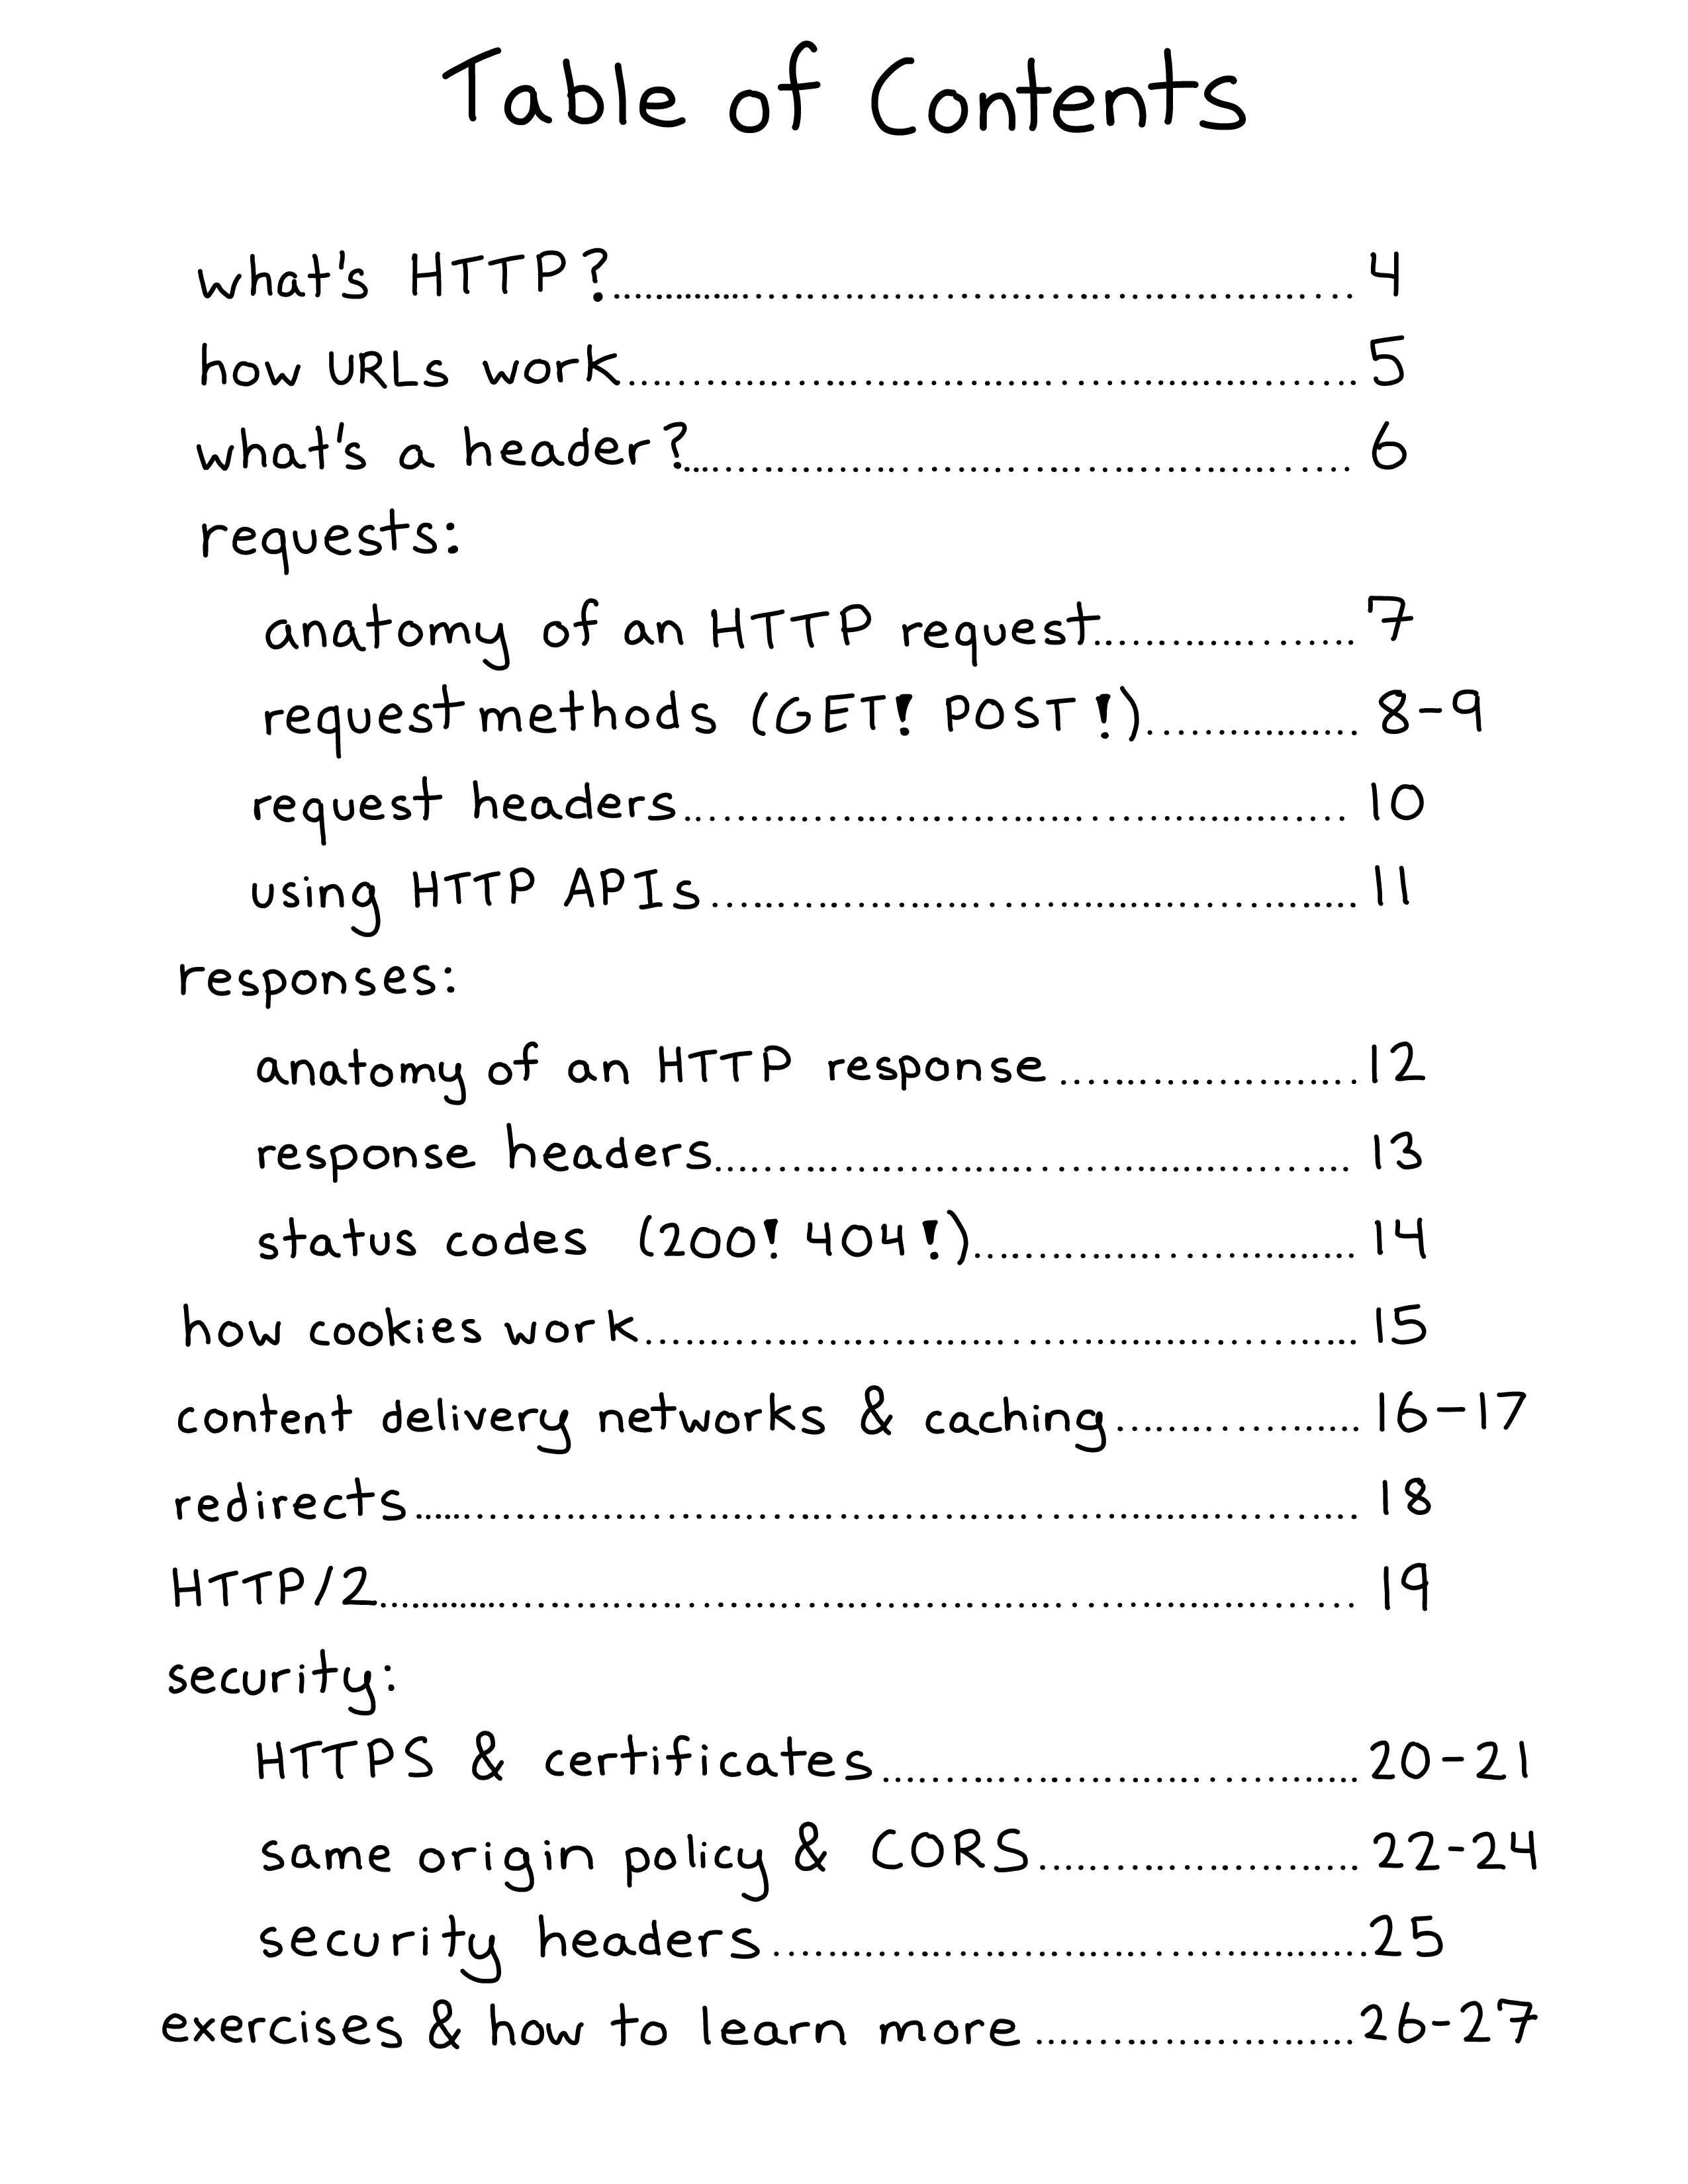 Table of Contents
what's HTTP?........ 4
how URLs work........ 5
what's a header?........ 6
requests:
anatomy of an HTTP request........ 7
request methods (GET! POST!)........ 8-9
request headers........ 10
using HTTP APIs........ 11
responses:
anatomy of an HTTP response........ 12
response headers........ 13
status codes (200! 404!)........ 14
how cookies work........ 15
content delivery networks & caching........ 16-17
redirects........ 18
HTTP/2........ 19
security:
HTTPS & certificates........ 20-21
same origin policy & CORS........ 22-24
security headers........ 25
exercises & how to learn more........ 26-27